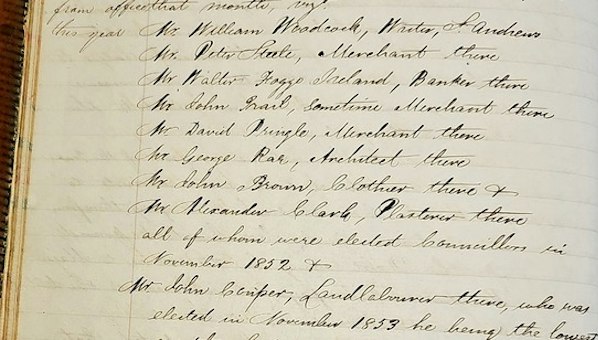 from office that month, viz.
this year Mr. William Woodcock, Writer, St. Andrews
Mr. Peter Steele, Merchant there
Mr Walter Foggo Ireland, Banker there
Mr. John Trail, Sometime Merchant there
Mr. David Pringle, Merchant there
Mr. George Rae, Architect there
Mr. John Brown, Clothier there &
Mr. Alexander Clark, Plasterer there
all of whom were elected Councillors in
November 1852 &
Mr. John Couper, Landlabourer there, who was
elected in November 1853 he being the lowest